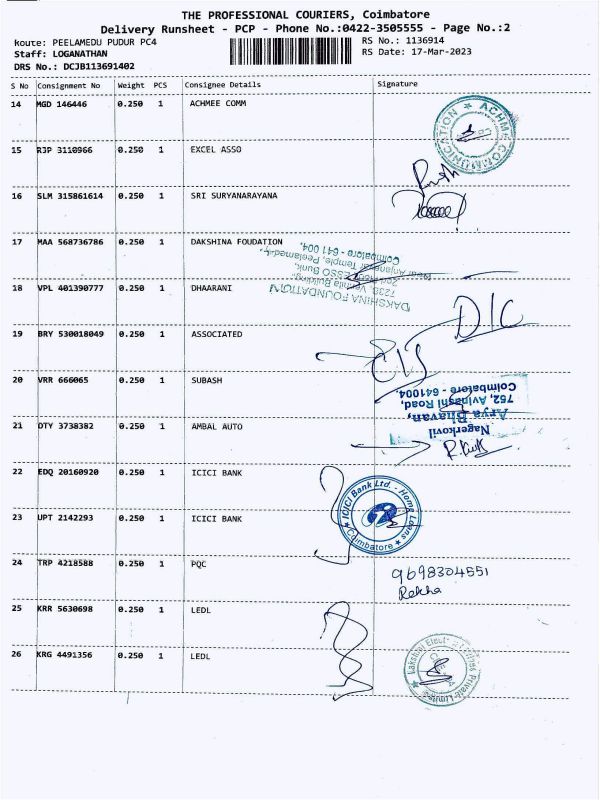 THE PROFESSIONAL COURIERS, Coimbatore
Delivery Runsheet - PCP - Phone No.:0422-3505555 - Page No.:2
koute: PEELAMEDU PUDUR PC4
RS No.: 1136914
Staff: LOGANATHAN
RS Date: 17-Mar-2023
DRS No.: DCJB113691402
S No Consignment No Weight PCS Consignee Details Signature
14 MGD 146446 0.250 1 ACHMEE COMM
ACHME COMMUNICATION
15 RJP 3110966 0.250 1 EXCEL ASSO
16 SLM 315861614 0.250 1 SRI SURYANARAYANA
17 MAA 568736786 0.250 1 DAKSHINA FOUDATION
DAKSHINA FOUNDATION
Coimbatore - 641 004,
18 VPL 401390777 0.250 1 DHAARANI
D/C
19 BRY 530018049 0.250 1 ASSOCIATED
20 VRR 666065 0.250 1 SUBASH
Nagerkovil
Arya Bhavan,
752, Avinashi Road,
Coimbatore - 641004.
21 DTY 3738382 0.250 1 AMBAL AUTO
22 EDQ 20160920 0.250 1 ICICI BANK
ICICI Bank Ltd. - Home Loans
Coimbatore
23 UPT 2142293 0.250 1 ICICI BANK
24 TRP 4218588 0.250 1 PQC
9698304551
Rekha
25 KRR 5630698 0.250 1 LEDL
26 KRG 4491356 0.250 1 LEDL
Private Limited